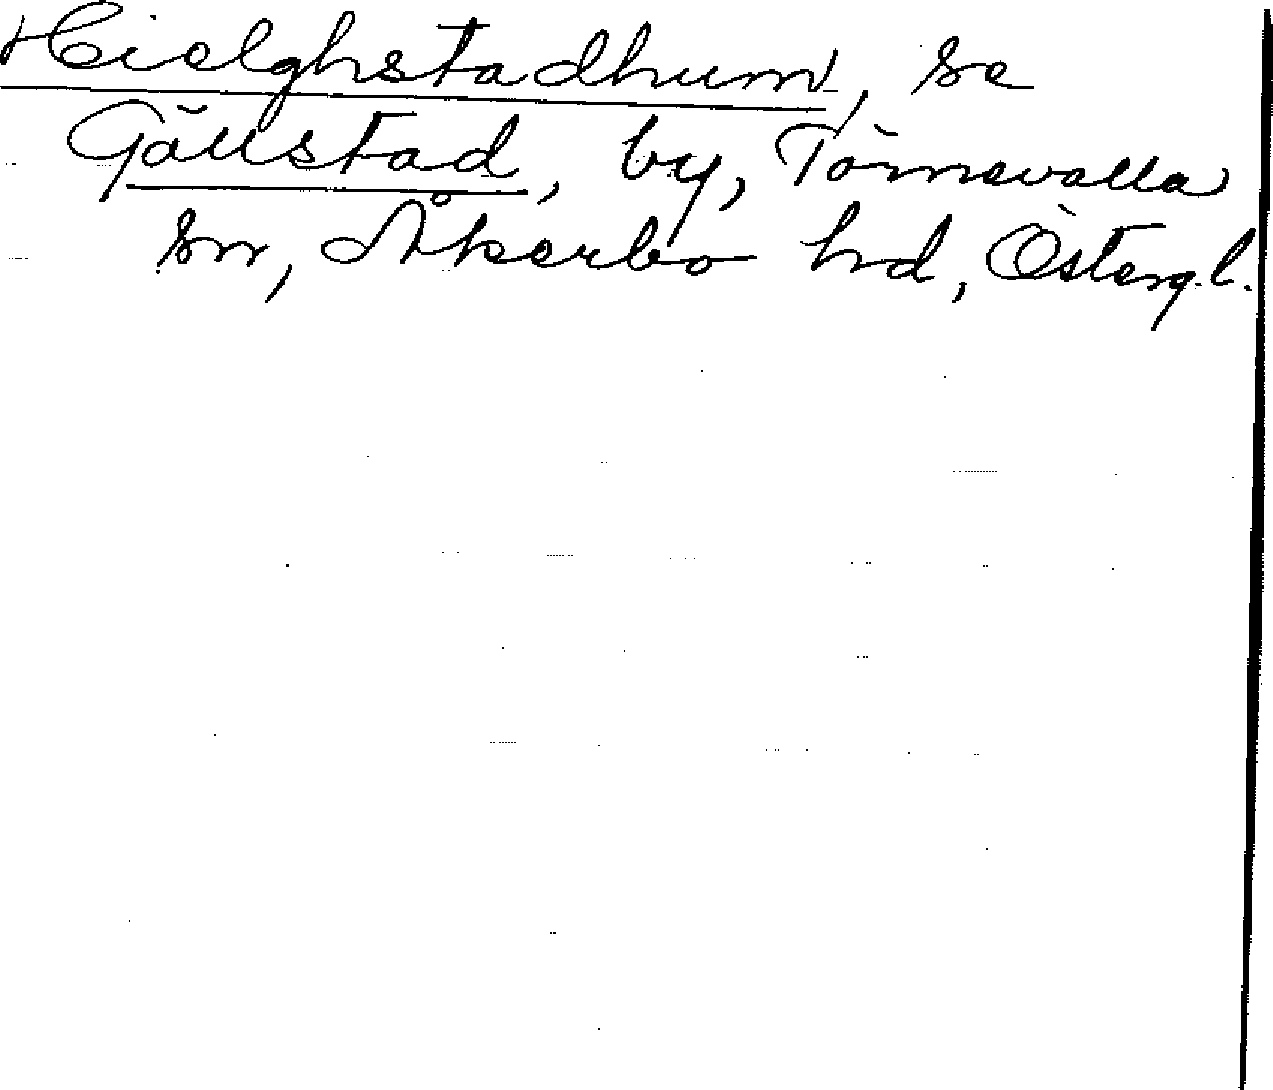 Hielghstadhum, se
Gällstad, by, Törnevalla
sn, Åkerbo hd, Östergl.